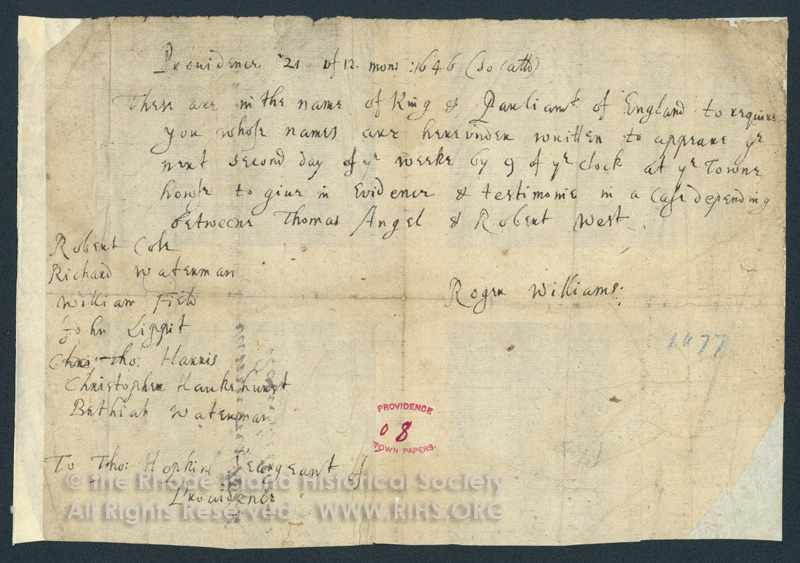 Providence 21 of 12. mon: 1646 (so calld)
These are in the name of King & Parliamt of England to require
you whose names are hereunder written to appeare ye
next second day of ye weeke by 9 of ye clock at ye Towne
howse to give in Evidence & testimonie in a Case depending
betweene Thomas Angel & Robert West.
Robert Cole
Richard Waterman
William Field
John Lippit
Tho: Harris
Christopher Haukshurst
Bethiah Waterman
Roger Williams:
1477
PROVIDENCE
08
TOWN PAPERS.
To Tho: Hopkins Sergeant of
Providence
© the Rhode Island Historical Society
All Rights Reserved - WWW.RIHS.ORG